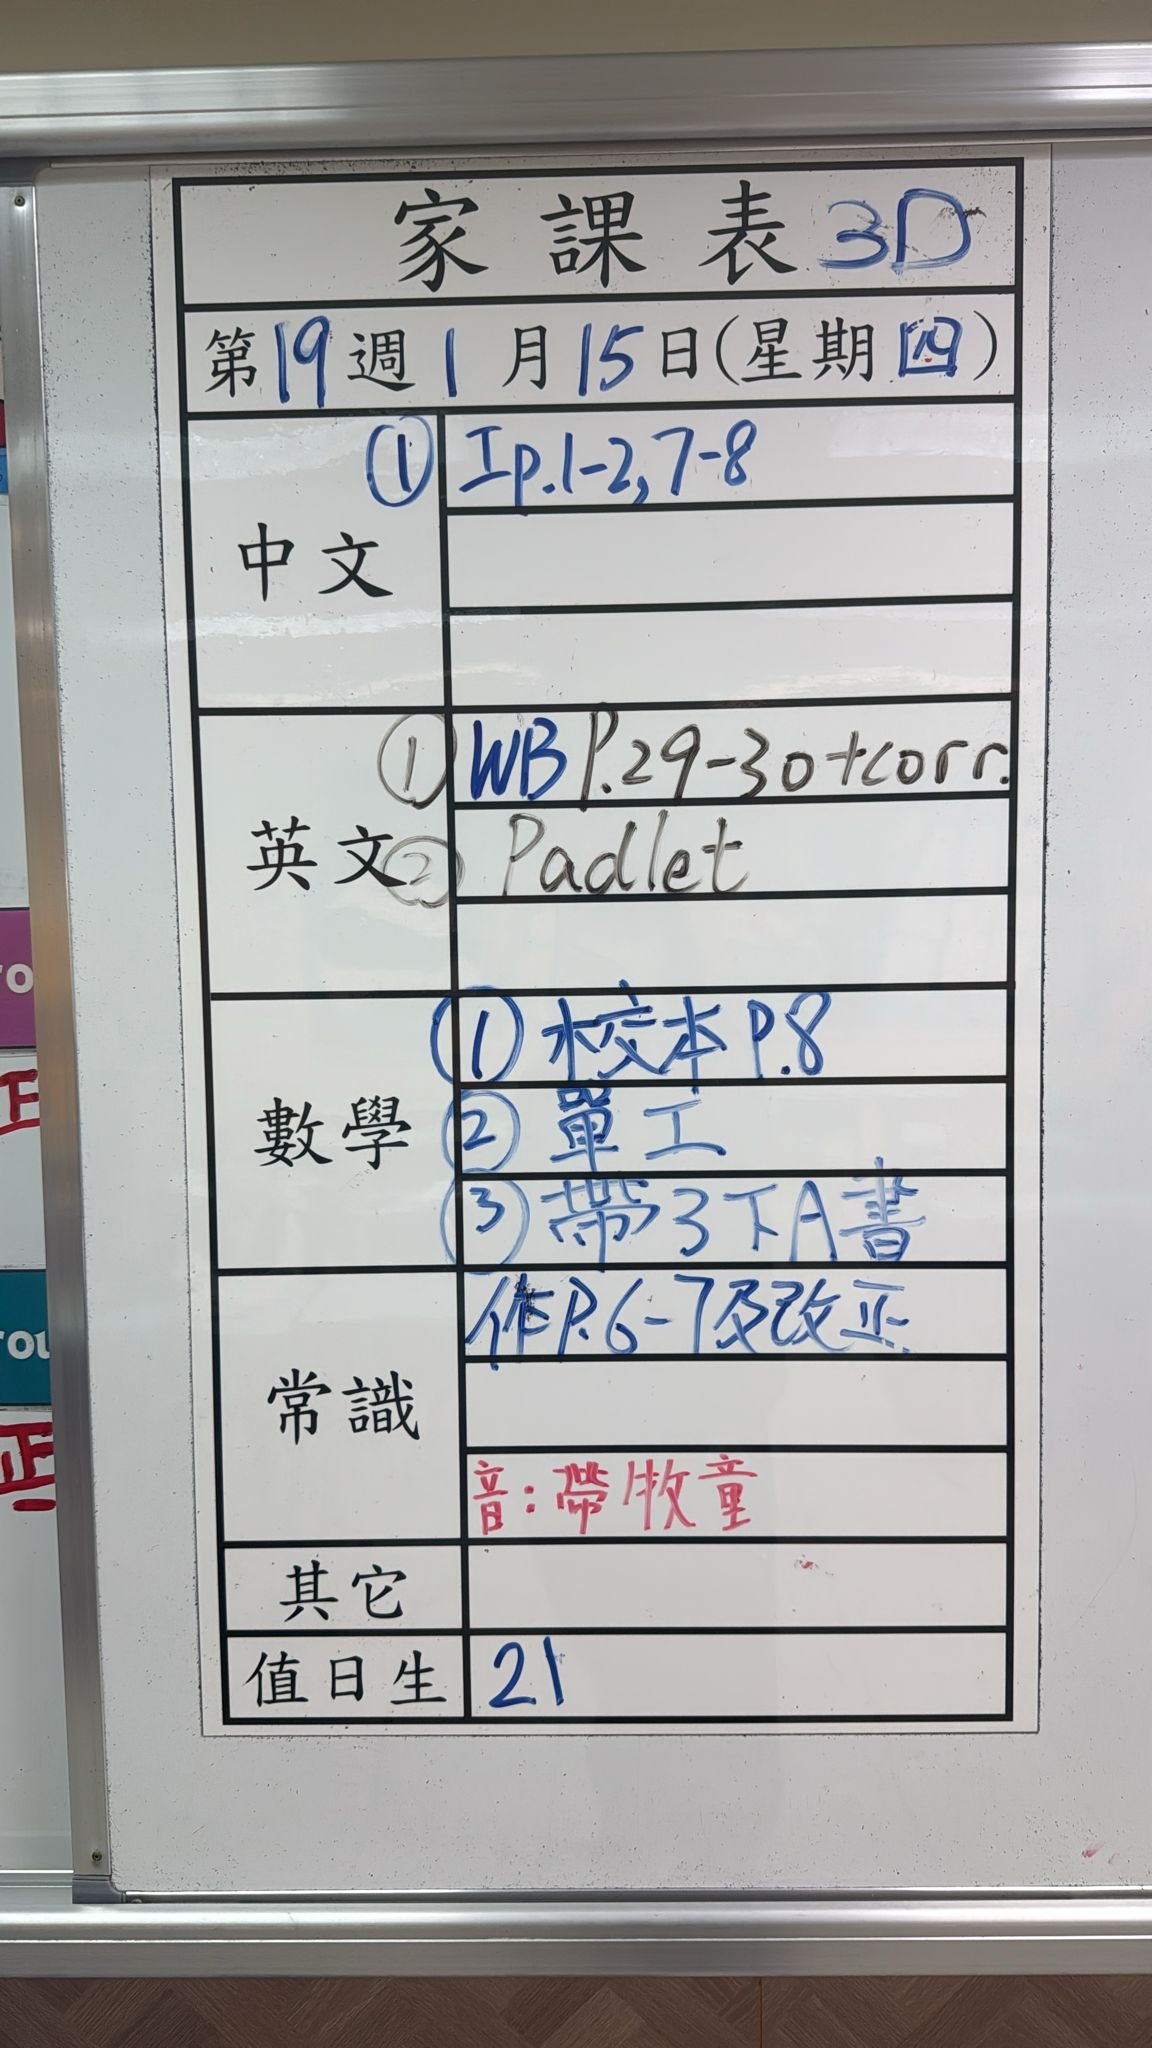 家課表 3D
第19週 1月15日(星期四)
中文
① 工p.1-2, 7-8
英文
① WB P.29-30+corr.
② Padlet
數學
① 校本P.8
② 單工
③ 帶3下A書
常識
作P.6-7及改正
音:帶牧童
其它
值日生
21
正
正